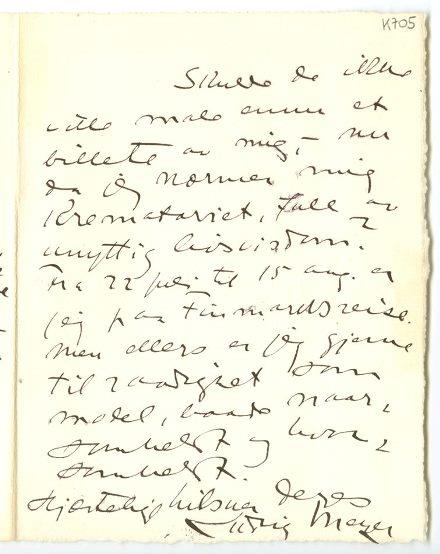 K705
Skulde de ikke
ville male ennu et
billete av mig, – nu
da jeg nærmer mig
Krematoriet, full av
unyttig livsvisdom.
Fra 22 juli til 15 aug. er
jeg paa Finmarksreise.
Men ellers er jeg gjerne
til raadighet som
model, baade naar-
somhelst og hvor-
somhelst.
Hjertelig hilsen Deres
Ludvig Meyer